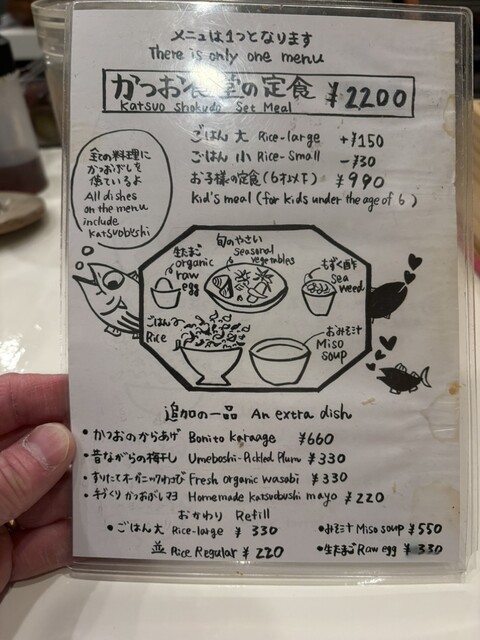 メニューは1つとなります
There is only one menu
かつお食堂の定食 ¥2200
Katsuo Shokudo Set Meal
ごはん 大 Rice-large +¥150
ごはん 小 Rice-Small -¥30
お子様の定食(6才以下) ¥990
Kid's meal (for kids under the age of 6)
全ての料理に
かつおぶしを
使ているよ
All dishes
on the menu
include
Katsuobushi
生たまご
organic
raw
egg
旬のやさい
seasonal
vegetables
もずく酢
sea
weed
ごはん
Rice
おみそ汁
Miso
soup
追加の一品 An extra dish
• かつおのからあげ Bonito Karaage ¥660
• 昔ながらの梅干し Umeboshi-Pickled Plum ¥330
• すりたてオーガニックわさび Fresh organic wasabi ¥330
• 手づくりかつおぶしマヨ Homemade katsuobushi mayo ¥220
おかわり Refill
• ごはん 大 Rice-large ¥330
並 Rice Regular ¥220
• みそ汁 Miso soup ¥550
• 生たまご Raw egg ¥330